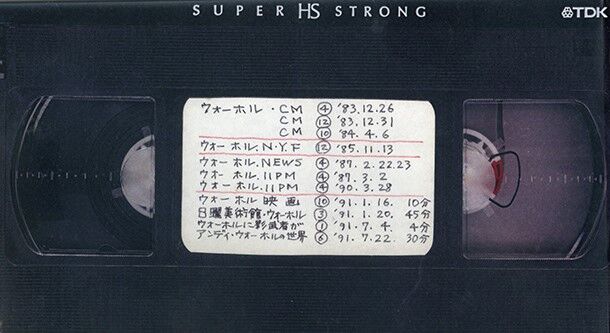 SUPER HS STRONG
TDK
ウォーホル・CM ④ '83.12.26
CM ⑫ '83.12.31
CM ⑩ '84.4.6
ウォーホル.N.Y.F ⑫ '85.11.13
ウォーホル.NEWS ④ '87.2.22.23
ウォーホル.11PM ④ '87.3.2
ウォーホル.11PM ④ '90.3.28
ウォーホル映画 ⑩ '91.1.16. 10分
日曜美術館・ウォーホル ③ '91.1.20. 45分
ウォーホルに影武者が ① '91.7.4. 4分
アンディ・ウォーホルの世界 ⑥ '91.7.22. 30分